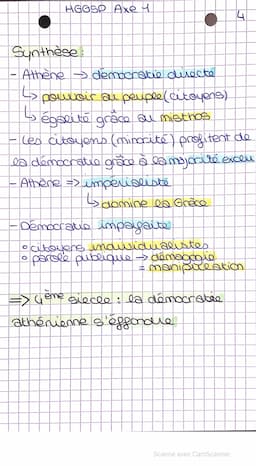 HGGSP Axe 1
4
Synthèse :
- Athène → démocratie directe
↳ pouvoir au peuple (citoyens)
↳ égalité grâce au misthos
- Les citoyens (minorité) profitent de
la démocratie grâce à la majorité exclu
- Athène => impérialiste
↳ domine la Grèce
- Démocratie imparfaite
° citoyens individualistes
° parole publique → démagogie
= manipulation
=> 4ème siecle : la démocratie
athénienne s'éffondre
Scanné avec CamScanner